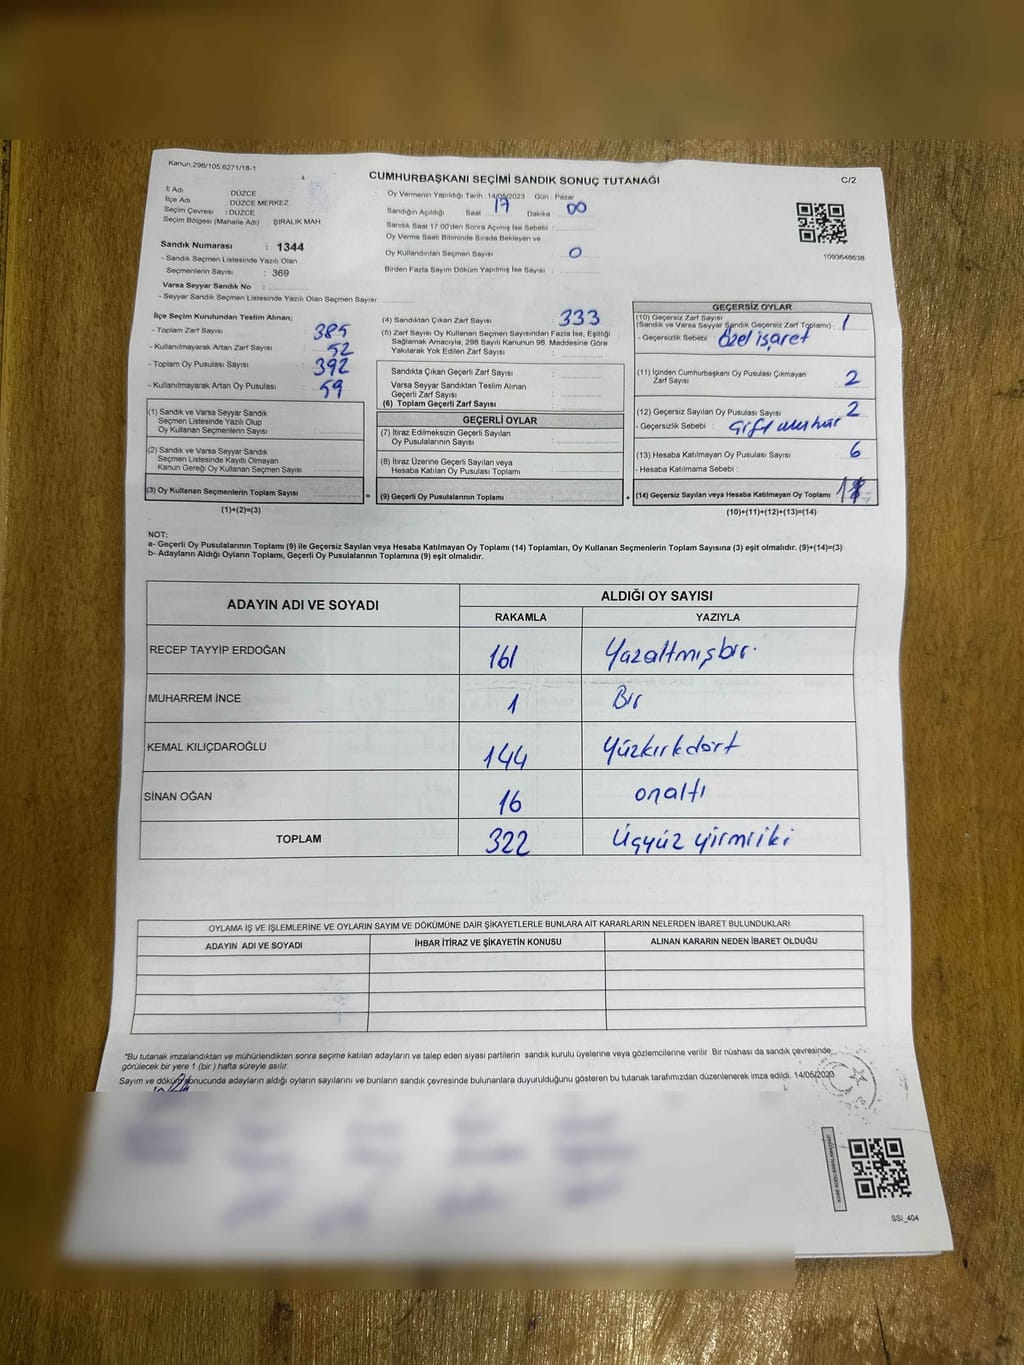 Kanun:298/105,6271/18-1
CUMHURBAŞKANI SEÇİMİ SANDIK SONUÇ TUTANAĞI
C/2
İl Adı DÜZCE
İlçe Adı : DÜZCE MERKEZ
Seçim Çevresi : DÜZCE
Seçim Bölgesi (Mahalle Adı) ŞIRALIK MAH.
Sandık Numarası : 1344
- Sandık Seçmen Listesinde Yazılı Olan
Seçmenlerin Sayısı : 369
Varsa Seyyar Sandık No :
- Seyyar Sandık Seçmen Listesinde Yazılı Olan Seçmen Sayısı:
Oy Vermenin Yapıldığı Tarih :14/05/2023 Gün : Pazar
Sandığın Açıldığı Saat 17 Dakika 00
Sandık Saat 17:00'den Sonra Açımış İse Sebebi :
Oy Verme Saati Bitiminde Sırada Bekleyen ve
Oy Kullandırılan Seçmen Sayısı 0
Birden Fazla Sayım Döküm Yapılmış İse Sayısı :
1093648638
İlçe Seçim Kurulundan Teslim Alınan;
- Toplam Zarf Sayısı 385
- Kullanılmayarak Artan Zarf Sayısı 52
- Toplam Oy Pusulası Sayısı 392
- Kullanılmayarak Artan Oy Pusulası 59
(1) Sandık ve Varsa Seyyar Sandık
Seçmen Listesinde Yazılı Olup
Oy Kullanan Seçmenlerin Sayısı
(2) Sandık ve Varsa Seyyar Sandık
Seçmen Listesinde Kayıtlı Olmayan
Kanun Gereği Oy Kullanan Seçmen Sayısı
(3) Oy Kullanan Seçmenlerin Toplam Sayısı :
(1)+(2)=(3)
(4) Sandıktan Çıkan Zarf Sayısı 333
(5) Zarf Sayısı Oy Kullanan Seçmen Sayısından Fazla İse, Eşitliği
Sağlamak Amacıyla, 298 Sayılı Kanunun 98. Maddesine Göre
Yakılarak Yok Edilen Zarf Sayısı
Sandıkta Çıkan Geçerli Zarf Sayısı
Varsa Seyyar Sandıktan Teslim Alınan
Geçerli Zarf Sayısı
(6) Toplam Geçerli Zarf Sayısı
GEÇERLİ OYLAR
(7) İtiraz Edilmeksizin Geçerli Sayılan
Oy Pusulalarının Sayısı
(8) İtiraz Üzerine Geçerli Sayılan veya
Hesaba Katılan Oy Pusulası Toplamı
= (9) Geçerli Oy Pusulalarının Toplamı
GEÇERSİZ OYLAR
(10) Geçersiz Zarf Sayısı
(Sandık ve Varsa Seyyar Sandık Geçersiz Zarf Toplamı) : 1
- Geçersizlik Sebebi : özel işaret
(11) İçinden Cumhurbaşkanı Oy Pusulası Çıkmayan
Zarf Sayısı 2
(12) Geçersiz Sayılan Oy Pusulası Sayısı 2
- Geçersizlik Sebebi : Çift mühür
(13) Hesaba Katılmayan Oy Pusulası Sayısı 6
- Hesaba Katılmama Sebebi :
+ (14) Geçersiz Sayılan veya Hesaba Katılmayan Oy Toplamı
(10)+(11)+(12)+(13)=(14)
NOT:
a- Geçerli Oy Pusulalarının Toplamı (9) ile Geçersiz Sayılan veya Hesaba Katılmayan Oy Toplamı (14) Toplamları, Oy Kullanan Seçmenlerin Toplam Sayısına (3) eşit olmalıdır. (9)+(14)=(3)
b- Adayların Aldığı Oyların Toplamı, Geçerli Oy Pusulalarının Toplamına (9) eşit olmalıdır.
ADAYIN ADI VE SOYADI
ALDIĞI OY SAYISI
RAKAMLA YAZIYLA
RECEP TAYYİP ERDOĞAN 161 Yüzaltmışbir.
MUHARREM İNCE 1 Bir
KEMAL KILIÇDAROĞLU 144 Yüzkırkdört
SİNAN OĞAN 16 onaltı
TOPLAM 322 Üçyüz yirmiiki
OYLAMA İŞ VE İŞLEMLERİNE VE OYLARIN SAYIM VE DÖKÜMÜNE DAİR ŞİKAYETLERLE BUNLARA AİT KARARLARIN NELERDEN İBARET BULUNDUKLARI
ADAYIN ADI VE SOYADI İHBAR İTİRAZ VE ŞİKAYETİN KONUSU ALINAN KARARIN NEDEN İBARET OLDUĞU
"Bu tutanak imzalandıktan ve mühürlendikten sonra seçime katılan adayların ve talep eden siyasi partilerin sandık kurulu üyelerine veya gözlemcilerine verilir. Bir nüshası da sandık çevresinde
görülecek bir yere 1 (bir ) hafta süreyle asılır.
Sayım ve döküm sonucunda adayların aldığı oyların sayılarını ve bunların sandık çevresinde bulunanlara duyurulduğunu gösteren bu tutanak tarafımızdan düzenlenerek imza edildi. 14/05/2023
SSİ_404